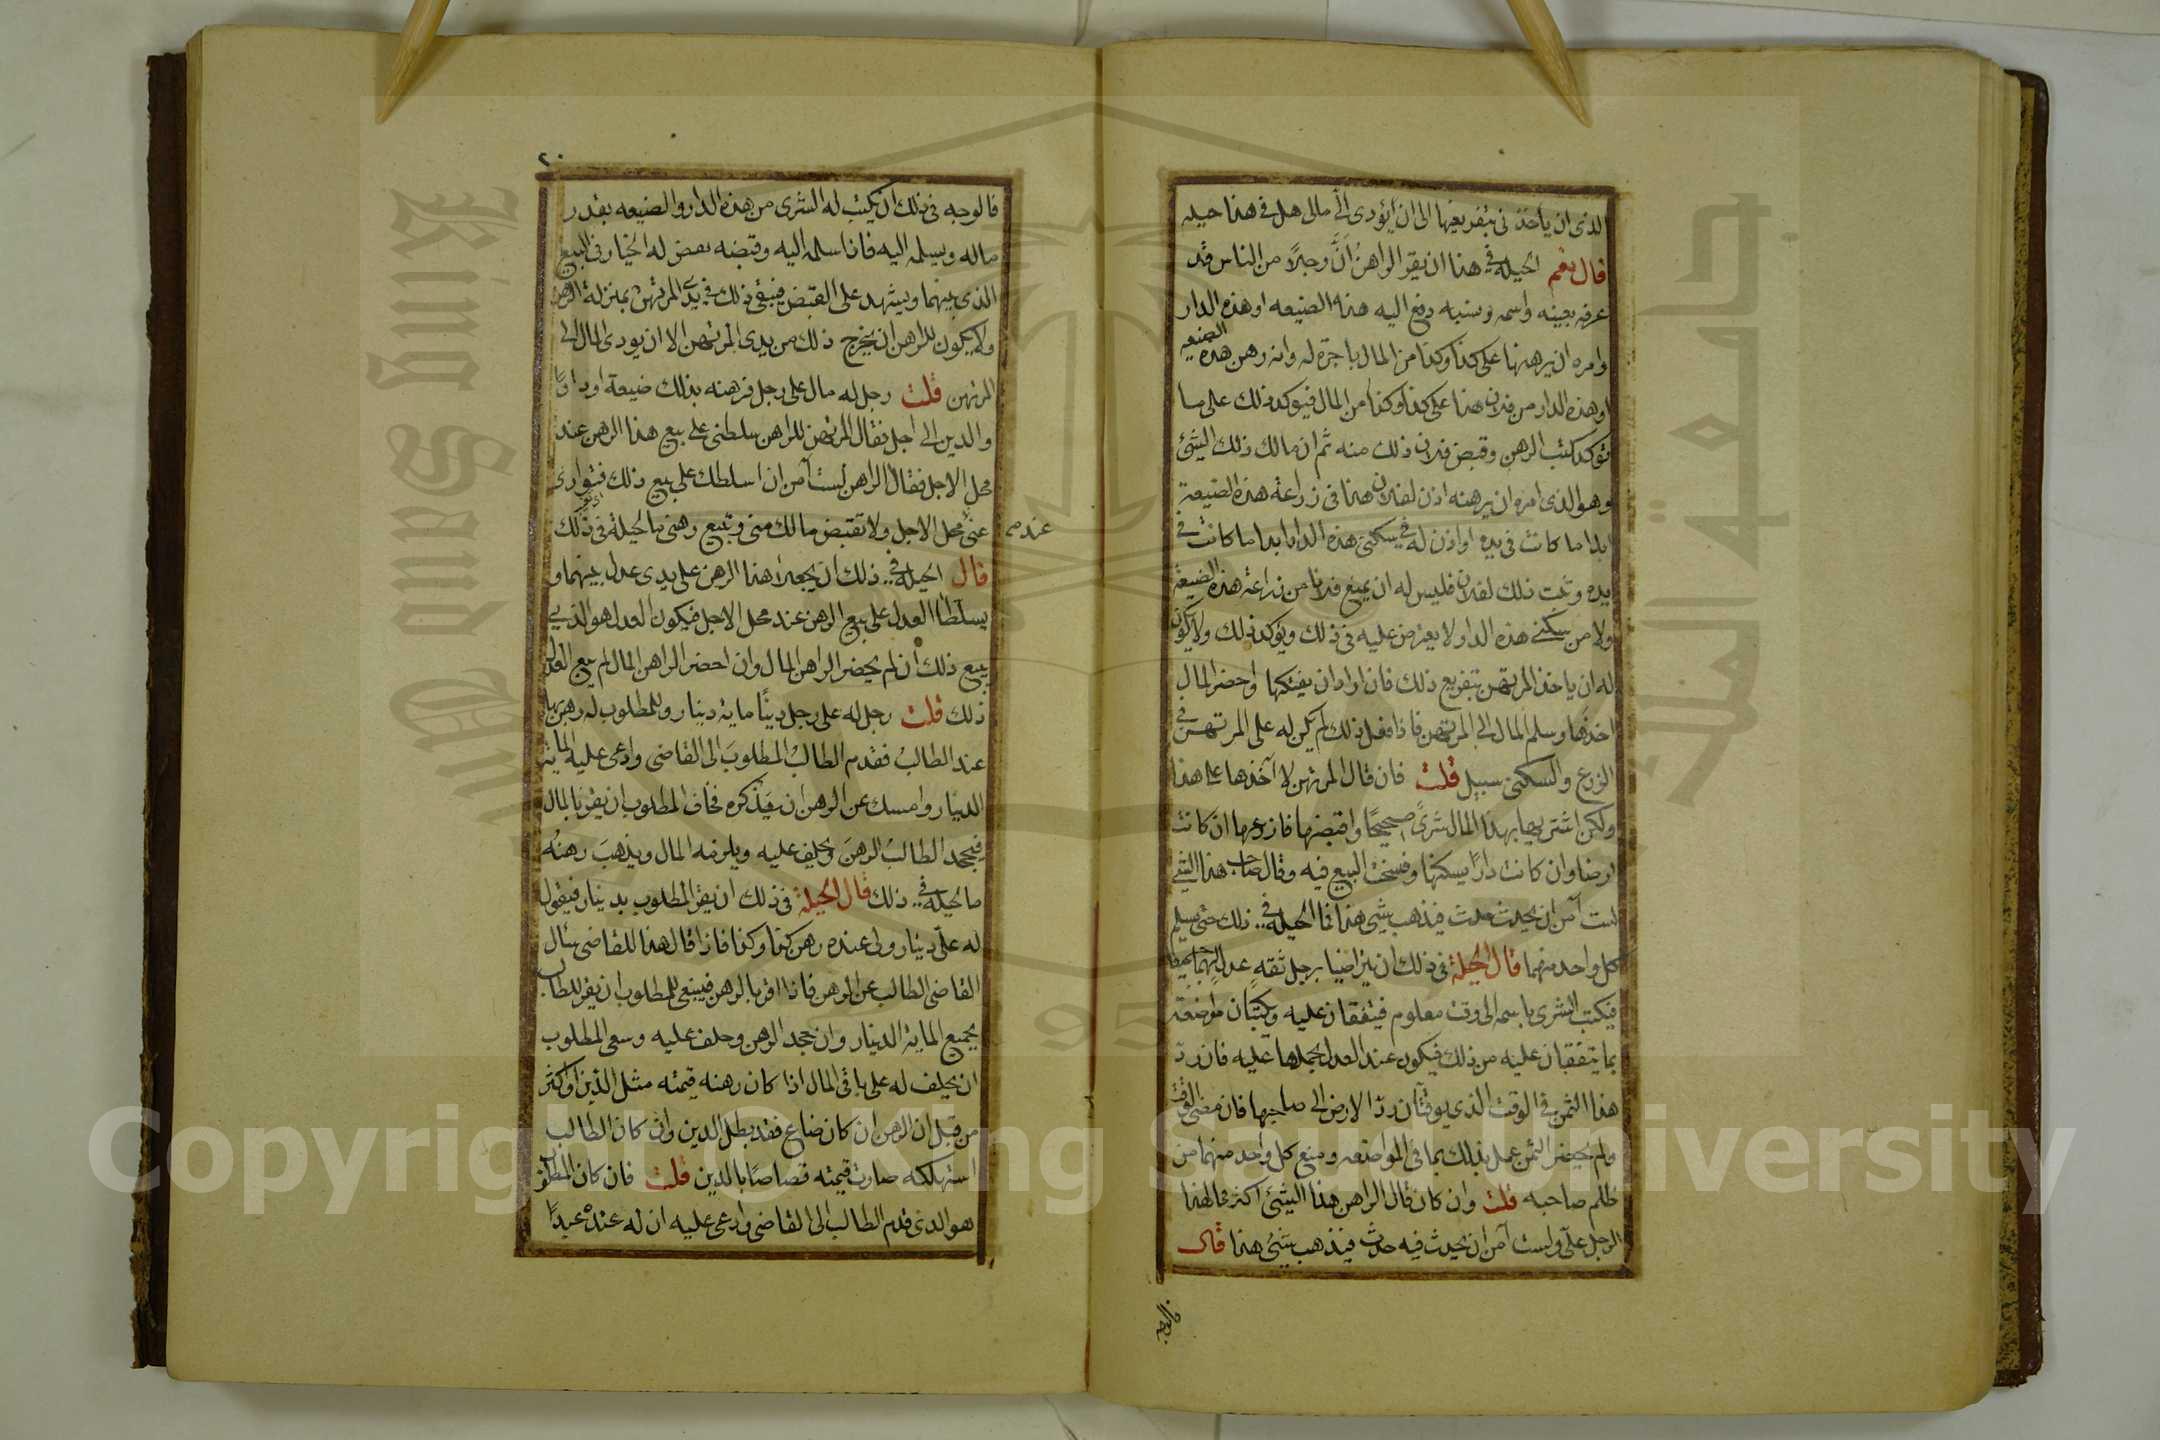 الذى ان ياخذنى بتفريغها الى ان يؤدى الىّ مالى هل فى هذا حيله
قال نعم الحيلة فى هذا ان يقر الراهنُ انَّ رجلاً من الناس قد
عرفه بعينه واسمه ونسبه دفع اليه هذه الضيعه او هذه الدار
وامره ان يرهنها على كذا وكذا من المال باجرة له وانه رهن هذه الضيعه
او هذه الدار من فلان هذا على كذا وكذا من المال فيوكد ذلك على ما
توكد كتب الرهن وقبض فلان ذلك منه ثم ان مالك ذلك الشئ
وهو الذى امره ان يرهنه اذن لفلان هذا فى زراعة هذه الضيعة
ابدا ما كانت فى يده او اذن له فى سكنى هذه الدار ابدا ما كانت فى
يده وثبت ذلك لفلان فليس له ان يمنع فلانا من زراعة هذه الضيعة
ولا من سكنى هذه الدار ولا يعترض عليه فى ذلك ويؤكد ذلك ولا يكون
له ان ياخذ المرتهن بتفريغ ذلك فان اراد ان يفتكها واحضر المال
اخذها وسلم المال الى المرتهن فاذا فعل ذلك لم يكن له على المرتهن فى
الزرع والسكنى سبيل قلت فان قال المرتهن لا آخذها على هذا
ولكن اشتريها بهذا المال شرىً صحيحًا واقبضها فازرعها ان كانت
ارضا وان كانت دارًا يسكنها وفسخت البيع فيه وقال صاحب هذا الشئ
لست آمن ان يحدث حدث فيذهب شيى هذا فما الحيلة فى ذلك حتى يسلم
كل واحد منهما قال الحيلة فى ذلك ان يتراضيا برجل ثقه عدل بينهما
فيكتب الشرى باسمه الى وقت معلوم فيتفقان عليه ويكتبان مواضعة
بما يتفقان عليه من ذلك فيكون عند العدل يحملها عليه فان رد
هذا الثمن فى الوقت الذى يوقتان ردّ الارض الى صاحبها فان مضى الوقت
ولم يحضر الثمن عمل بذلك بما فى المواضعه ومنع كل واحد منهما من
ظلم صاحبه قلت وان كان قال الراهن هذا الشئ اكثر مما لهذا
الرجل علىّ ولست آمن ان يحدث فيه حدث فيذهب شيئى هذا قال
فالوجه
٢٠
فالوجه فى ذلك ان يكتب له الشرى من هذه الدار والضيعه بقدر
ماله ويسلمه اليه فاذا سلمه اليه وقبضه نقض له الخيار فى البيع
الذى بينهما ويشهد على القبض فيبقى ذلك فى يدى المرتهن بمنزلة الرهن
ولا يكون للراهن ان يخرج ذلك من يدى المرتهن الا ان يودى المال الى
المرتهن قلت رجل له مال على رجل فرهنه بذلك ضيعة او دارًا
والدين الى اجل فقال المرتهن للراهن سلطنى على بيع هذا الرهن عند
محل الاجل فقال الراهن لست آمن ان اسلطك على بيع ذلك فتوارى
عنى محل الاجل ولا تقبض مالك منى وتبيع رهنى ما الحيلة فى ذلك
عند صح
قال الحيلة فى ذلك ان يجعلا هذا الرهن على يدى عدل بينهما و
يسلّطا العدل على بيع الرهن عند محل الاجل فيكون العدل هو الذى
يبيع ذلك ان لم يحضر الراهن المال وان احضر الراهن المال لم يبع العدل
ذلك قلت رجل له على رجل دينًا ماية دينار وللمطلوب له رهن بها
عند الطالب فقدم الطالبُ المطلوبَ الى القاضى وادعى عليه الماية
الدينار وامسك عن الرهن ان يذكره فخاف المطلوب ان يقر بالمال
فيجحد الطالبُ الرهنَ ويحلف عليه ويلزمه المال ويذهبَ رهنُه
ما الحيلة فى ذلك قال الحيلة فى ذلك ان يقر المطلوب بدينار فيقول
له علىّ دينار ولى عنده رهن كذا وكذا فاذا قال هذا للقاضى سئال
القاضى الطالب عن الرهن فاذا اقر بالرهن فينبغى للمطلوب ان يقر للطالب
بجميع الماية الدينار وان جحد الرهن وحلف عليه وسعى المطلوب
ان يحلف له على باقى المال اذا كان رهنه قيمته مثل الدين او اكثر
من قبل ان الرهن ان كان ضاع فقد بطل الدين وان كان الطالب
استهلكه صارت قيمته قصاصًا بالدين قلت فان كان المطلوب
هو الذى قدم الطالب الى القاضى وادعى عليه ان له عنده عبدًا
Copyright © King Saud University
King Saud University
جامعة الملك سعود
1957